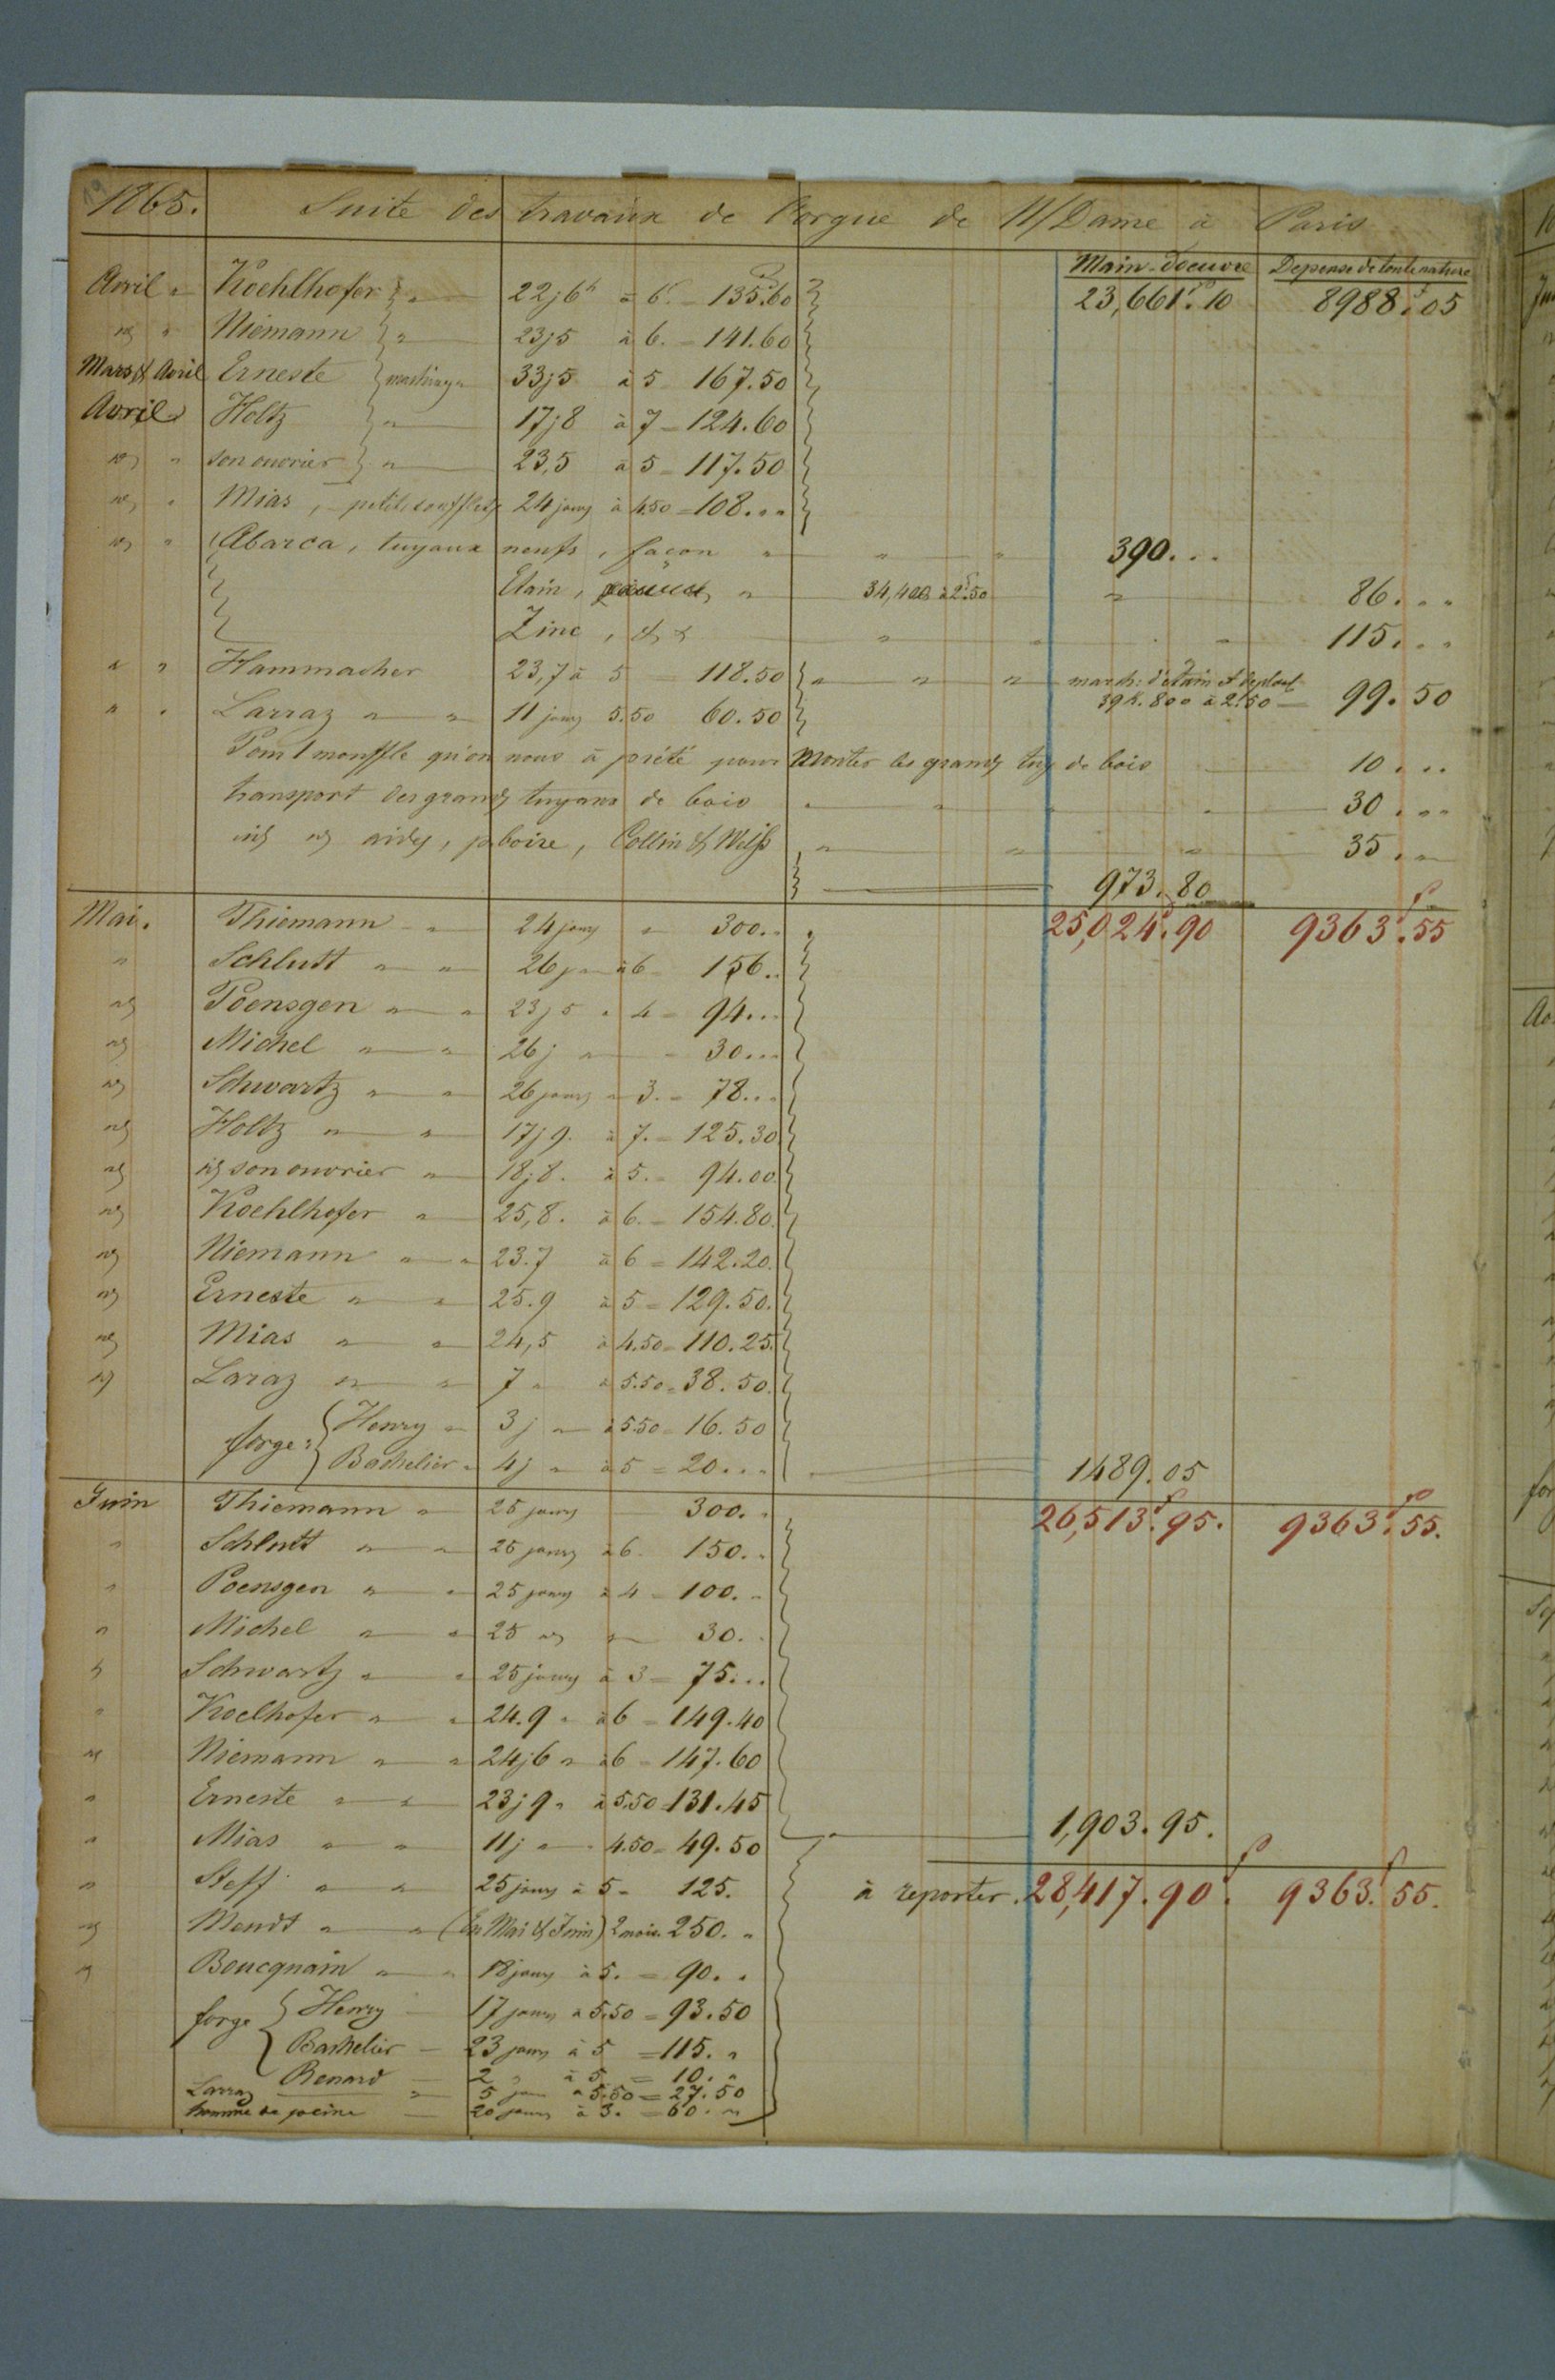 1865. Suite des travaux de l'orgue de N/Dame à Paris
Main-d'oeuvre Depense de toute nature
Avril " Koehlhofer " 22j6h à 6f. = 135.60 23,661f.10 8988f.05
" " Niemann " 23j5 à 6. = 141.60
Mars & Avril Erneste 33j5 à 5 = 167.50
Avril Holtz " 17j8 à 7 = 124.60
" " son ouvrier " 23,5 à 5 = 117.50
" " Mias, petits soufflets 24 jours à 4.50 = 108...
" " Abarca, tuyaux neufs, façon " " " 390...
Etain, " 34,400 à 2f.50 " 86...
Zinc, " " 115...
" " Hammacher 23,7 à 5 = 118.50 " " " march: d'étain et de plomb
39k.800 à 2f.50 — 99.50
" " Larraz " " 11 jours 5.50 60.50
Pour 1 mouffle qu'on nous à prété pour monter les grands tuy de bois 10...
transport des grands tuyaux de bois " " " 30...
aides, p boire, Collin & " " " 35."
973.80
Mai. Thiemann " 24 jours " 300.. 25,024f.90 9363f.55
" Schlutt " " 26 j à 6 = 156..
" Poensgen " " 23j5 " 4 = 94...
" Michel " " 26j " = 30...
" Schwartz " " 26 jours " 3. = 78...
" Holtz " " 17j9. à 7. = 125.30
" son ouvrier " 18j8. à 5. = 94.00
" Koehlhofer " 25,8. à 6. = 154.80.
" Niemann " " 23.7 à 6 = 142.20.
" Erneste " " 25.9 à 5 = 129.50.
" Mias " " 24,5 à 4.50 = 110.25.
" Laraz " " 7 " à 5.50 = 38.50.
forge: Henry " 3j " à 5.50 = 16.50
Bachelier " 4j " à 5 = 20...
1489.05
Juin Thiemann " 25 jours 300.. 26,513f.95. 9363f.55.
" Schlutt " " 25 jours à 6. 150..
" Poensgen " " 25 jours à 4 = 100."
" Michel " " 25 " " 30..
" Schwartz " " 25 jours à 3 = 75...
" Koelhofer " " 24.9 " à 6 = 149.40
" Niemann " " 24j6 " à 6 = 147.60
" Erneste " " 23j9 " à 5.50 131.45
1,903.95.
" Mias " " 11j " 4.50 = 49.50
" Steff " " 25 jours à 5 = 125. à reporter. 28,417f.90. 9363f.55.
" Mendt " " (En Mai & Juin) 2 mois. 250. "
" Boucquain " " 18 jours à 5. = 90..
forge Henry — 17 jours à 5.50 = 93.50
Bachelier — 23 jours à 5 = 115. "
Renard — 2 " à 5 = 10. "
Larraz " 5 jours à 5.50 = 27.50
homme de peine — 20 jours à 3. = 60. "